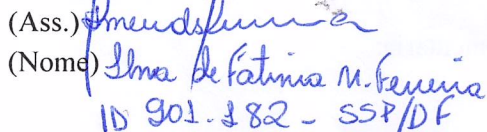 (Ass.)
(Nome) Ilma de Fátima M. Ferreira
ID 901.182 - SSP/DF